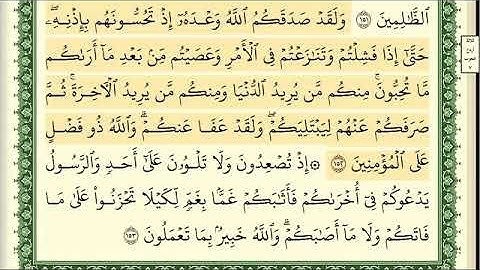 ٱلظَّٰلِمِينَ ١٥١ وَلَقَدۡ صَدَقَكُمُ ٱللَّهُ وَعۡدَهُۥٓ إِذۡ تَحُسُّونَهُم بِإِذۡنِهِۦۖ
حَتَّىٰٓ إِذَا فَشِلۡتُمۡ وَتَنَٰزَعۡتُمۡ فِي ٱلۡأَمۡرِ وَعَصَيۡتُم مِّنۢ بَعۡدِ مَآ أَرَىٰكُم
مَّا تُحِبُّونَۚ مِنكُم مَّن يُرِيدُ ٱلدُّنۡيَا وَمِنكُم مَّن يُرِيدُ ٱلۡأٓخِرَةَۚ ثُمَّ
صَرَفَكُمۡ عَنۡهُمۡ لِيَبۡتَلِيَكُمۡۖ وَلَقَدۡ عَفَا عَنكُمۡۗ وَٱللَّهُ ذُو فَضۡلٍ
عَلَى ٱلۡمُؤۡمِنِينَ ١٥٢ ۞ إِذۡ تُصۡعِدُونَ وَلَا تَلۡوُۥنَ عَلَىٰٓ أَحَدٖ وَٱلرَّسُولُ
يَدۡعُوكُمۡ فِيٓ أُخۡرَىٰكُمۡ فَأَثَٰبَكُمۡ غَمَّۢا بِغَمّٖ لِّكَيۡلَا تَحۡزَنُواْ عَلَىٰ مَا
فَاتَكُمۡ وَلَا مَآ أَصَٰبَكُمۡۗ وَٱللَّهُ خَبِيرُۢ بِمَا تَعۡمَلُونَ ١٥٣